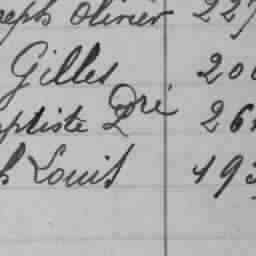 seph Olivier 227
Gilles 200
aptiste Dré 26
h Louis 193